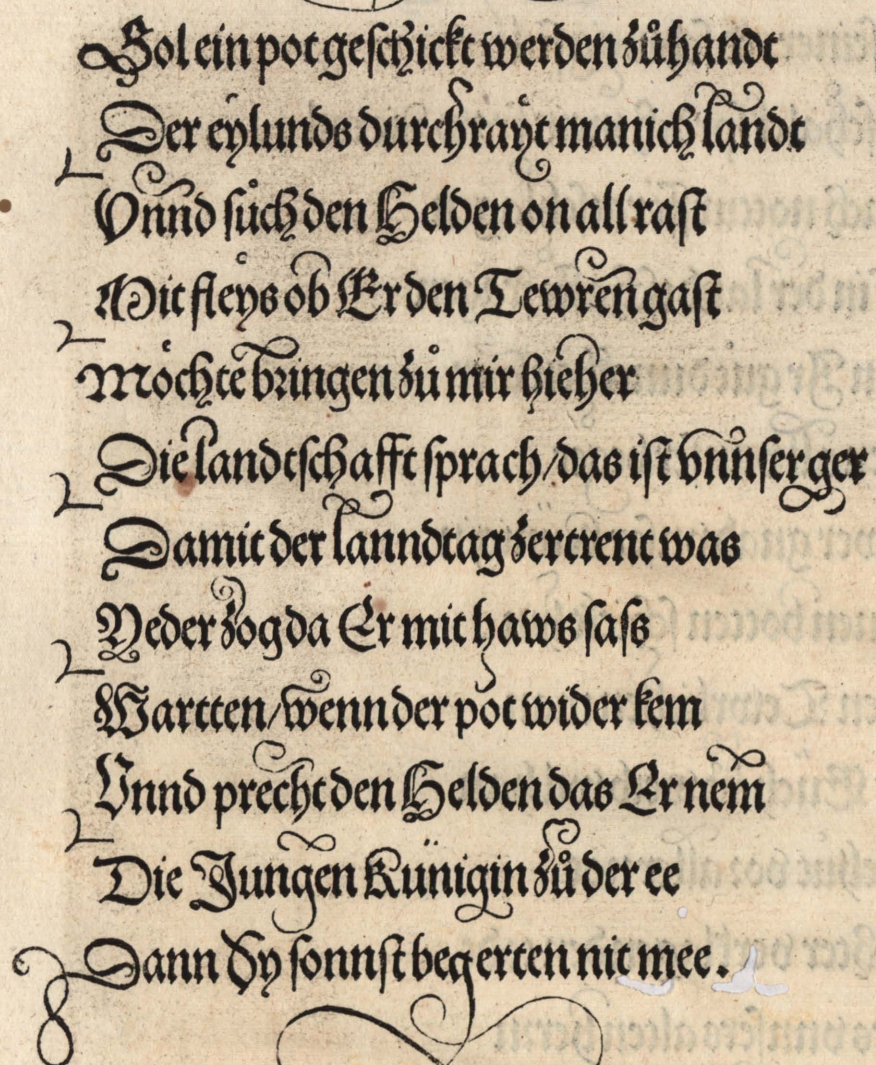 Sol ein pot geschickt werden zůhandt
Der eylunds durchrayt manich landt
Vnnd sůch den Helden on all rast
Mit fleys ob Er den Tewren gast
Möchte bringen zů mir hieher
Die landtschafft sprach/das ist vnnser ger
Damit der lanndtag zertrent was
Yeder zog da Er mit haws sass
Wartten/wenn der pot wider kem
Vnnd precht den Helden das Er nem
Die Jungen Künigin zů der ee
Dann Sy sonnst begerten nit mee.